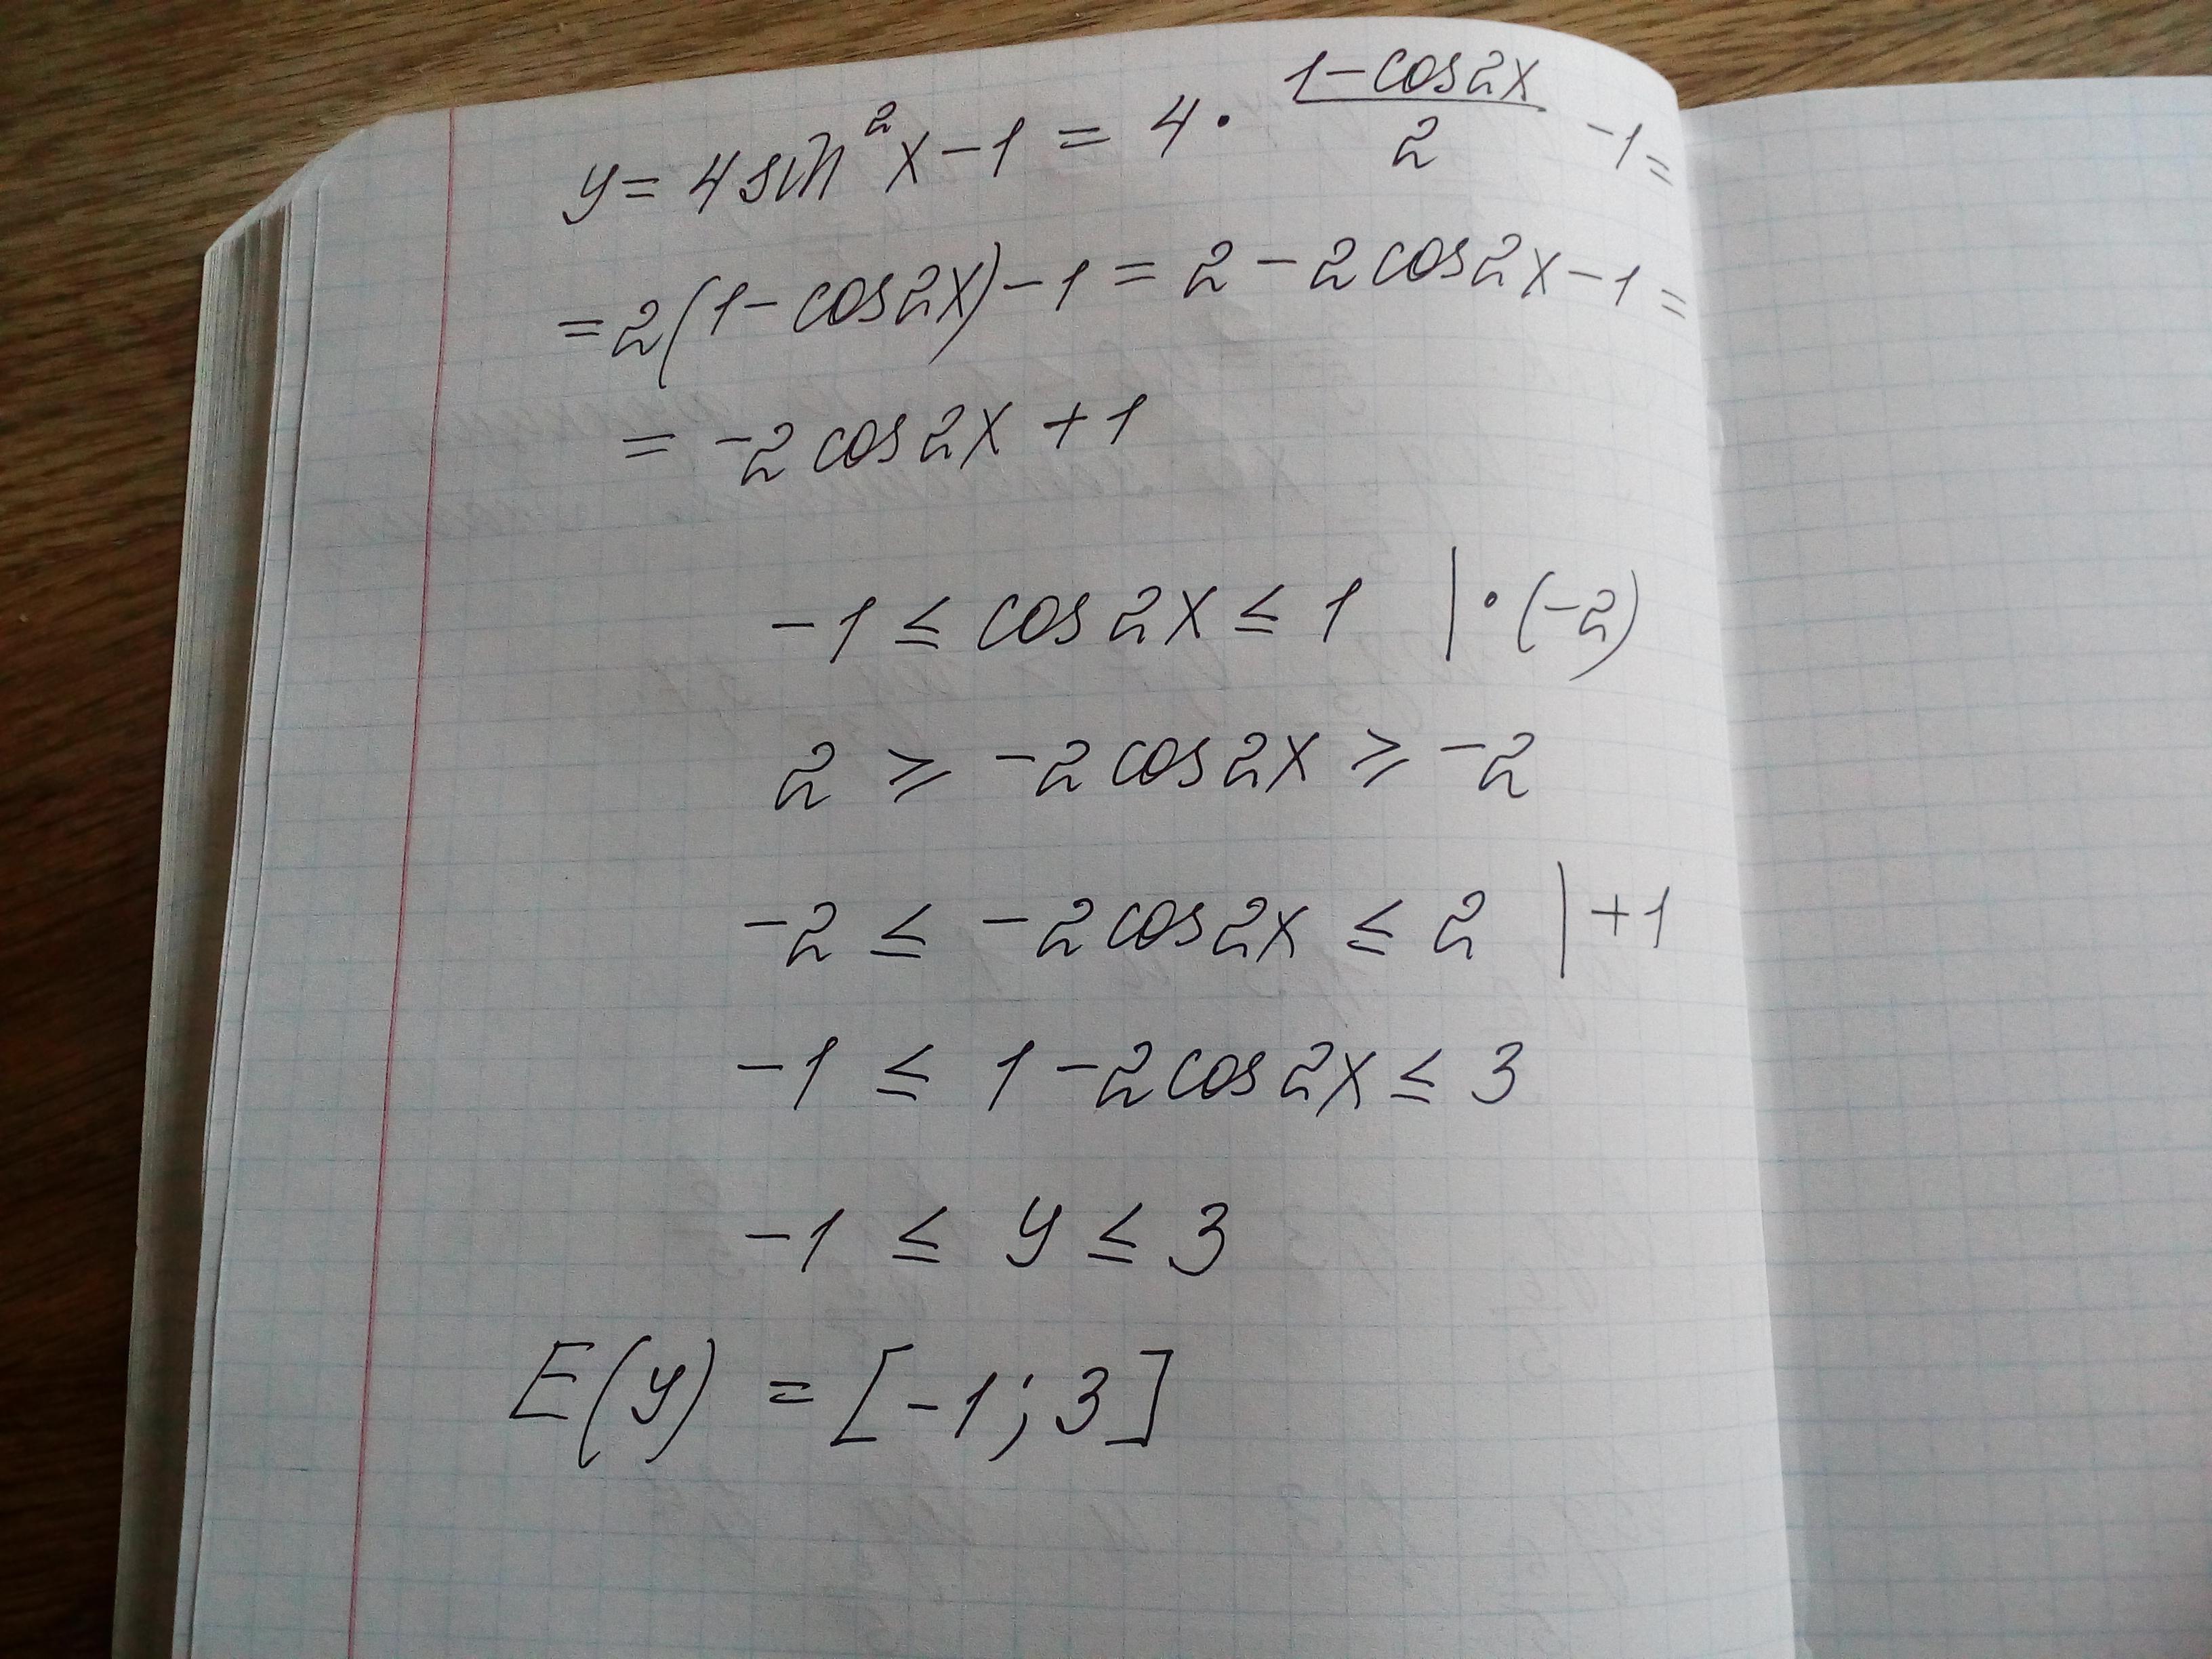 y = 4 sin² x − 1 = 4 · (1 − cos 2x)/2 − 1 =
= 2(1 − cos 2x) − 1 = 2 − 2 cos 2x − 1 =
= −2 cos 2x + 1
−1 ≤ cos 2x ≤ 1 | · (−2)
2 ≥ −2 cos 2x ≥ −2
−2 ≤ −2 cos 2x ≤ 2 | +1
−1 ≤ 1 − 2 cos 2x ≤ 3
−1 ≤ y ≤ 3
E(y) = [−1; 3]